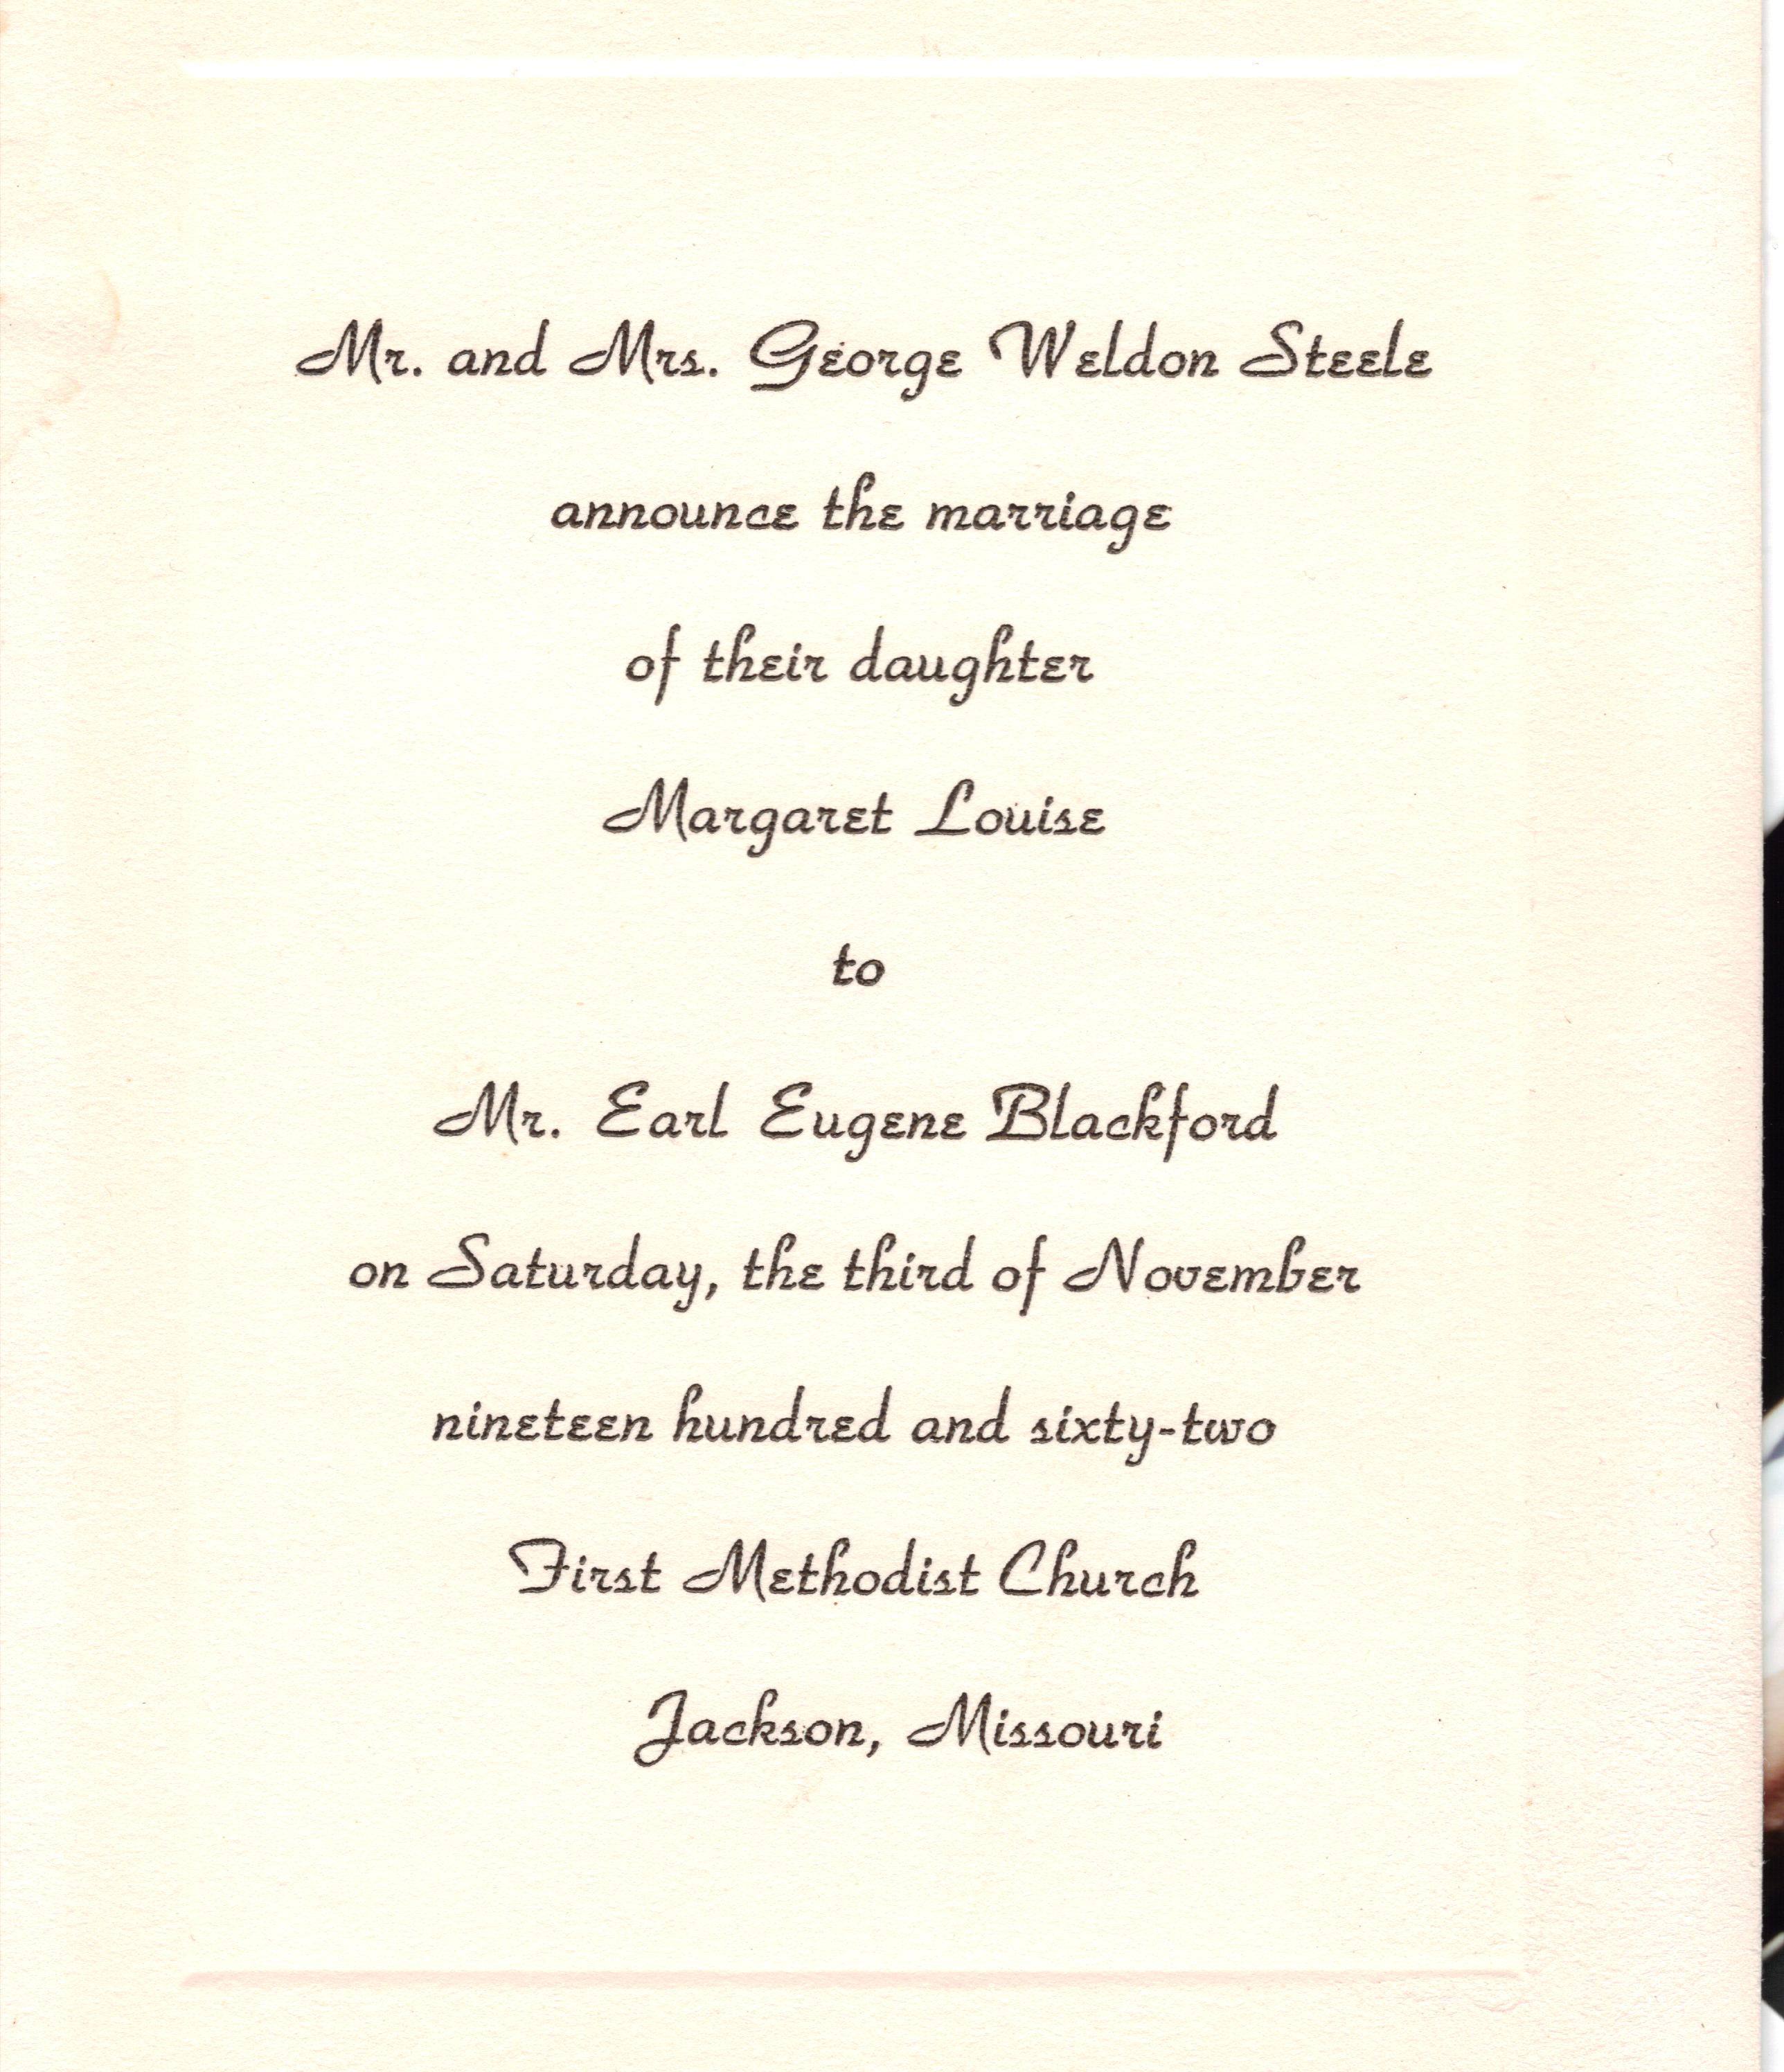 Mr. and Mrs. George Weldon Steele
announce the marriage
of their daughter
Margaret Louise
to
Mr. Earl Eugene Blackford
on Saturday, the third of November
nineteen hundred and sixty-two
First Methodist Church
Jackson, Missouri